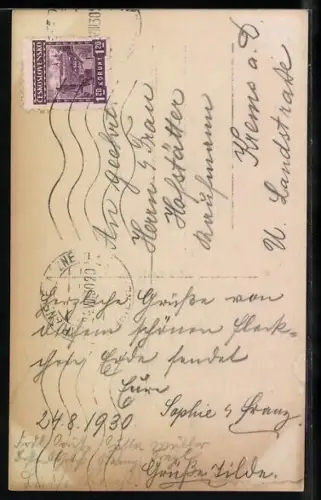 ČESKOSLOVENSKO
1.20 KORUNY 1.20
An geehrt.
Herrn & Frau
Hofstätter
Kaufmann
Krems a. D
U. Landstraße
Herzliche Grüße von
diesem schönen Fleck-
chen Erde sendet
Eure
Sophie & Franz
24.8.1930
Grüße Tilde.